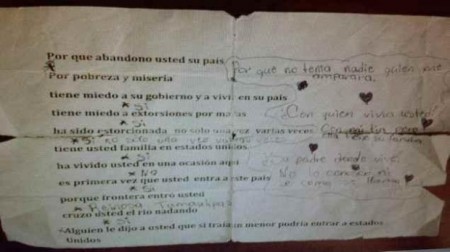 Por que abandono usted su pais
Por que no tenia nadie quien me
amparara.
Por pobreza y miseria
tiene miedo a su gobierno y a vivir en su pais
* Si
tiene miedo a extorsiones por maras
* Si
¿Con quien vivia usted?
ha sido estorcionada no solo una vez varias veces
* Si no solo una vez varias
tiene usted familia en estados unidos
* Si
¿Su padre donde vive.
ha vivido usted en una ocasión aqui
* No
No lo conozco ni
se como se llama
es primera vez que usted entra a este pais
* Si
porque frontera entro usted
* Reynosa Tamaulipas
cruzo usted el rio nadando
* Si
Alguien le dijo a usted que si traia un menor podria entrar a estados
unidos